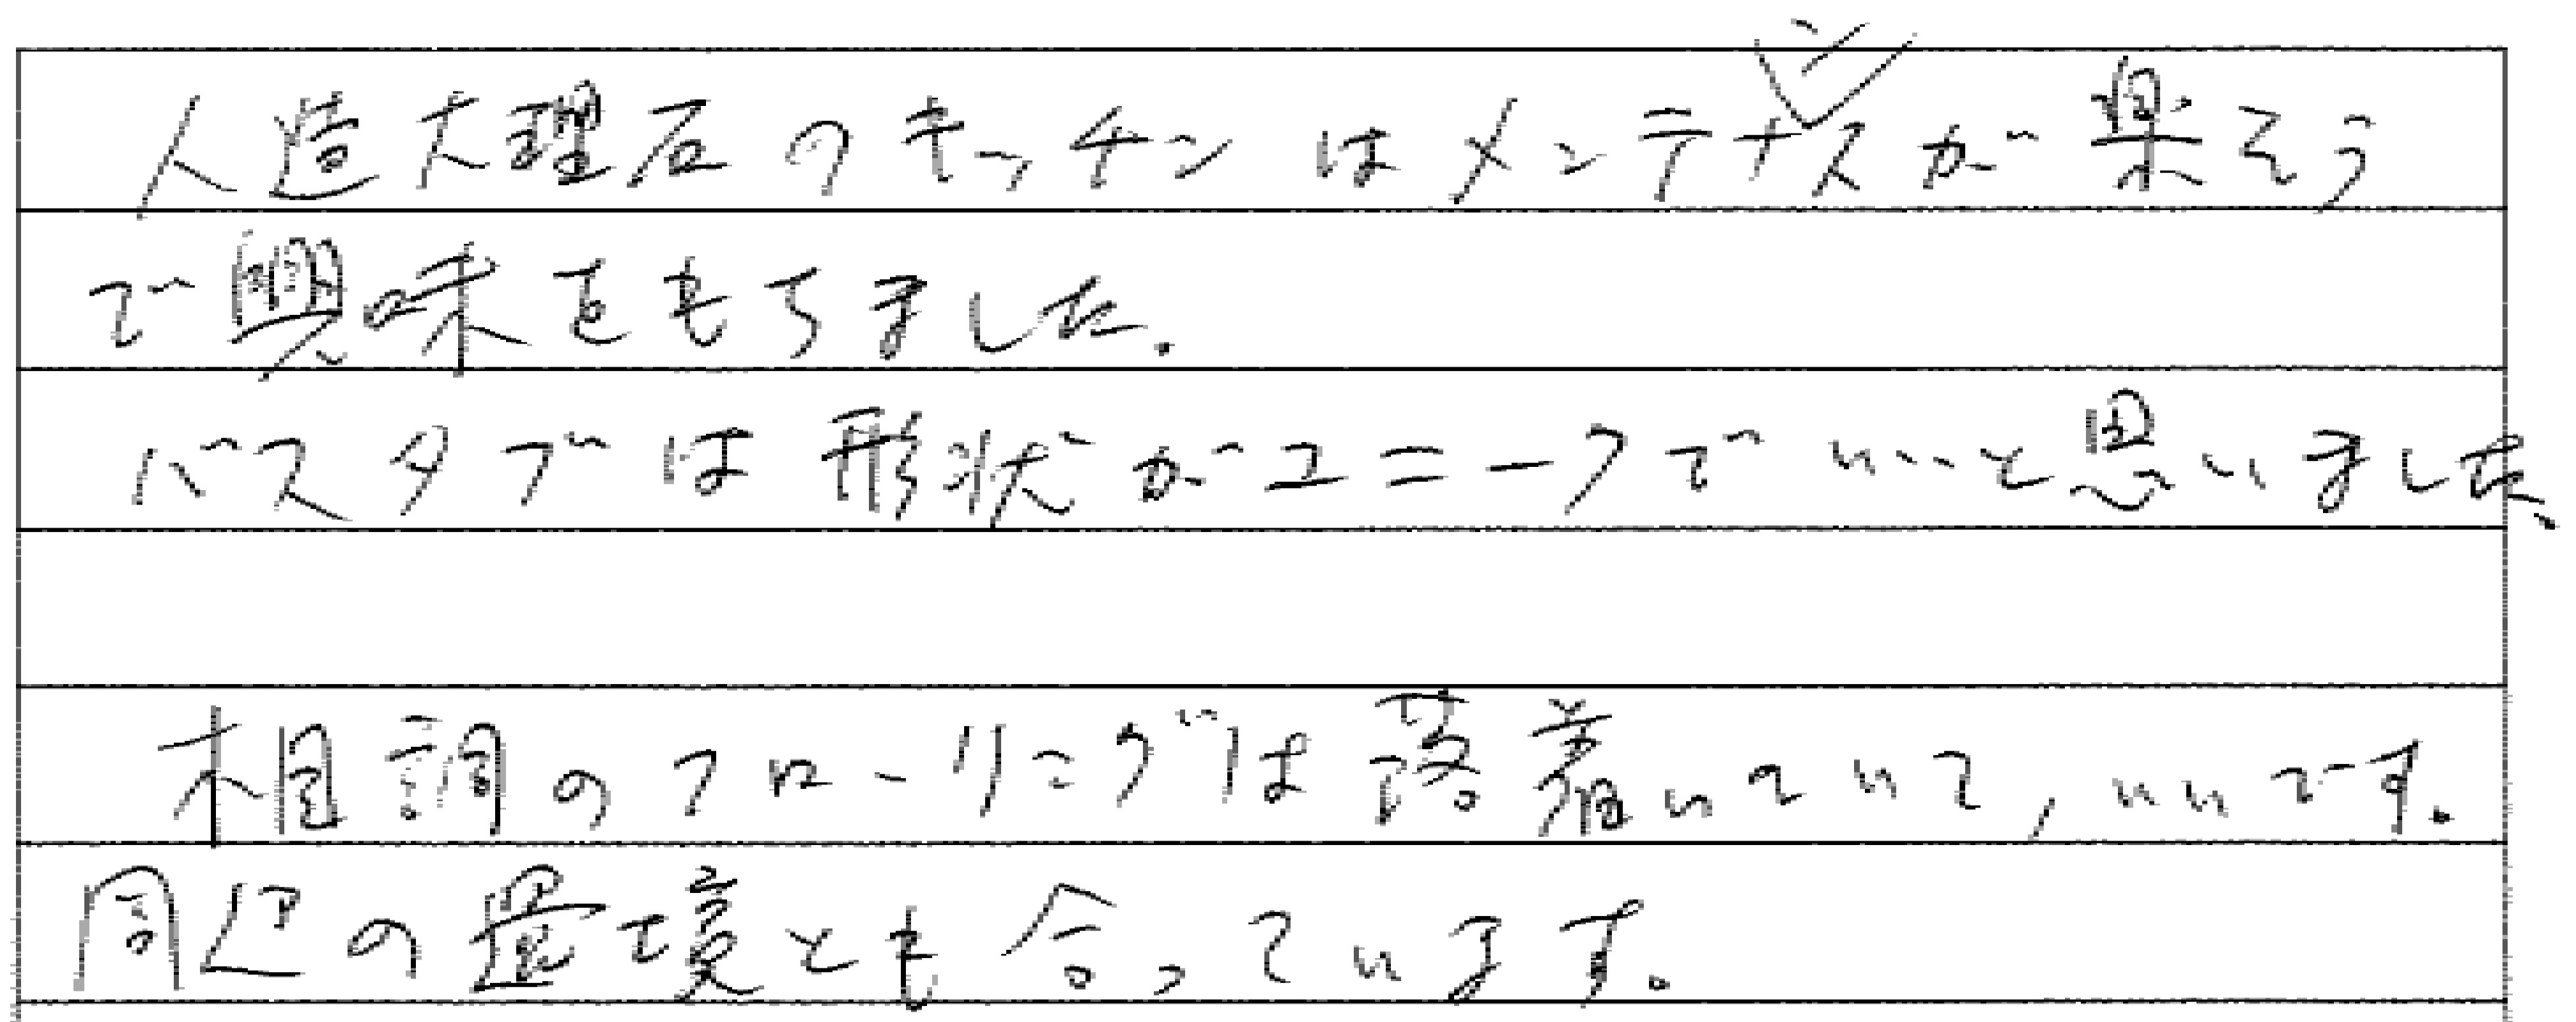 人造大理石のキッチンはメンテナンスが楽そう
で興味をもちました.
バスタブは形状がユニークでいいと思いました、
木目調のフローリングは落着いていて,いいです。
の とも合っています。